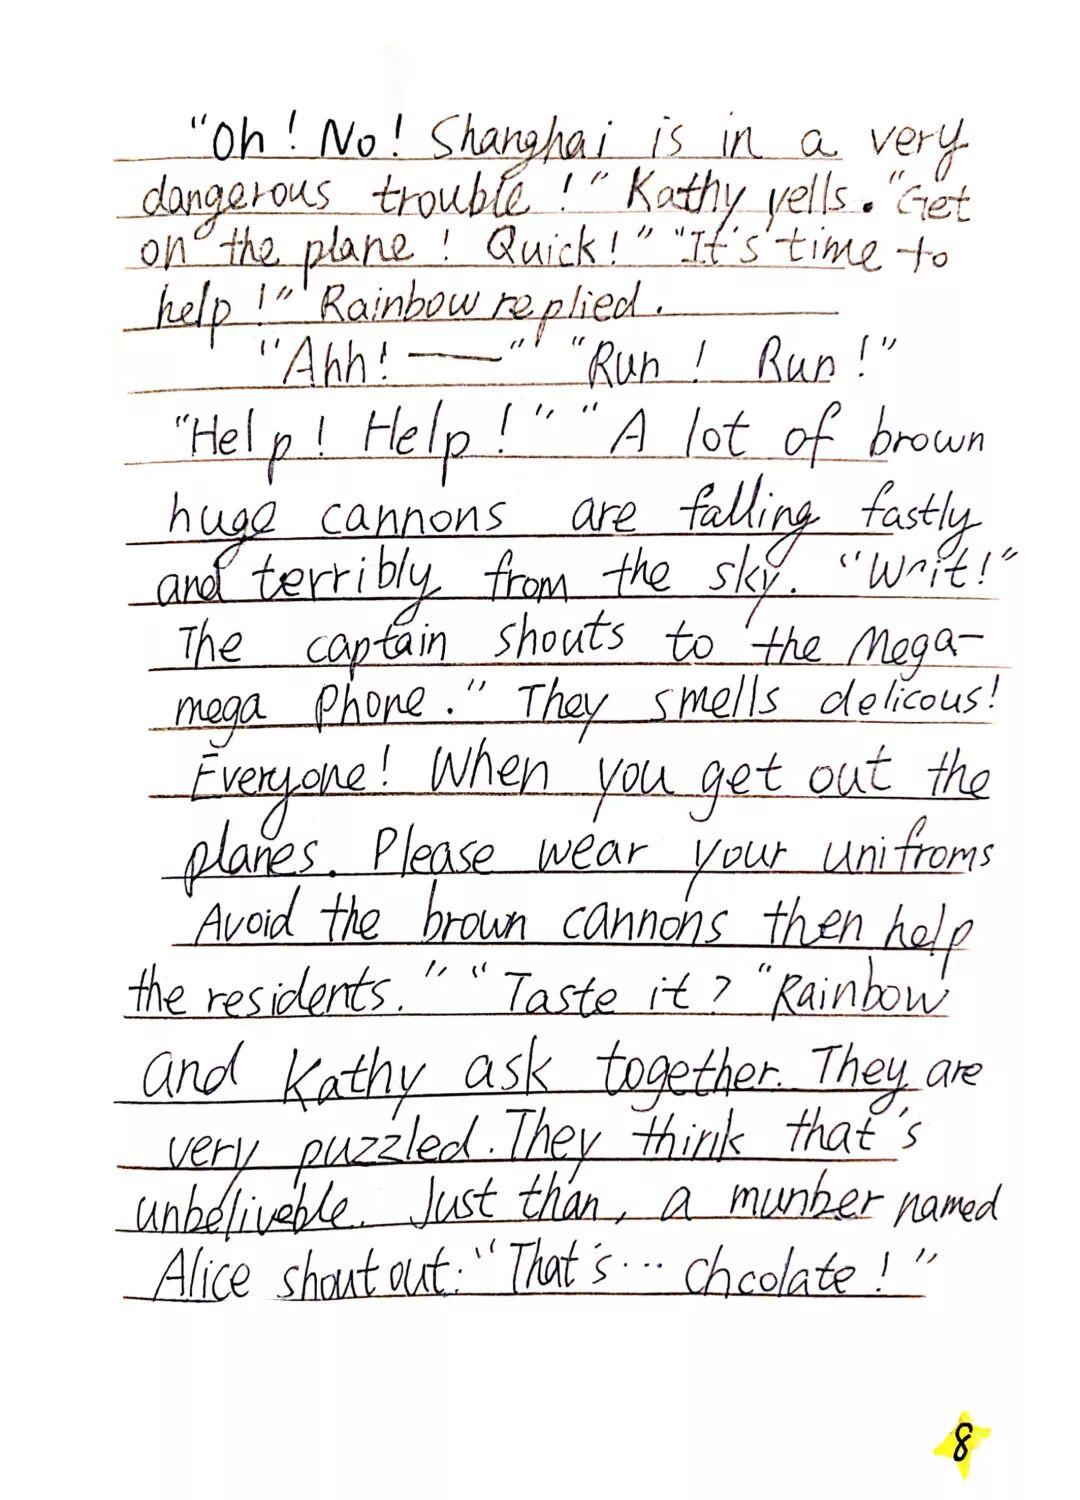 "Oh! No! Shanghai is in a very
dangerous trouble!" Kathy yells. "Get
on the plane! Quick!" "It's time to
help!" Rainbow replied.
"Ahh! —" "Run! Run!"
"Help! Help!" "A lot of brown
huge cannons are falling fastly
and terribly from the sky. "Writ!"
The captain shouts to the Mega-
mega Phone." They smells delicous!
Everyone! When you get out the
planes. Please wear your unifroms
Avoid the brown cannons then help
the residents." "Taste it? "Rainbow
and Kathy ask together. They are
very puzzled. They think that's
unbeliveble. Just than, a munber named
Alice shout out: "That's... chcolate!"
8